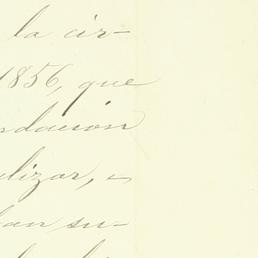 la cir-
1856, que
ndacion
lizar,
an su-